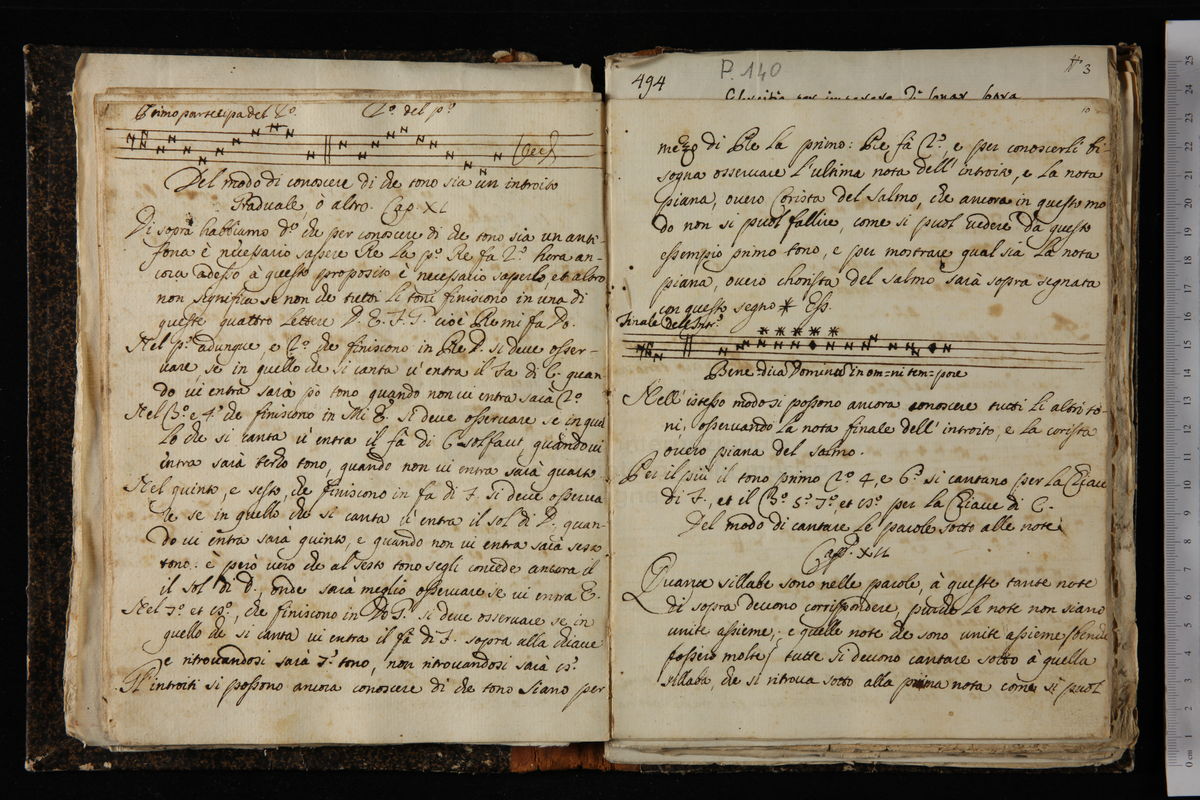 Primo partecipa del 2.º 2.º del p.º
Del modo di conoscere di che tono sia un introito
Graduale, ò altro. Cap. XL
Di sopra habbiamo d.º che per conoscere di che tono sia un anti-
fona è necessario sapere Re La p.º Re fa 2.º hora an-
cora adesso à questo proposito è necessario saperlo et altro
non significa se non che tutti li toni finiscono in una di
queste quattro lettere D. E. F. G. cioè Re mi fa Do.
Nel p.º adunque, e 2.º che finiscono in Re D. si deve osser-
vare se in quello che si canta v'entra il fa di C. quan
do vi entra sarà p.º tono quando non vi entra sarà 2.º
Nel 3.º e 4.º che finiscono in Mi E. si deve osservare se in quel
lo che si canta v'entra il fà di C solfaut quando vi
intra sarà terzo tono, quando non vi entra sarà quarto
Nel quinto, e sesto, che finiscono in fa di F. si deve osserva
re se in quello che si canta v'entra il sol di D. quan-
do vi entra sarà quinto, e quando non vi entra sarà sesto
tono: è però vero che al sesto tono segli concede ancora il
il sol di D., onde sarà meglio osservare se vi entra E.
Nel 7.º et 8.º, che finiscono in Do G. si deve osservare se in
quello che si canta vi entra il fà di F. sopra alla chiave
e ritrovandosi sarà 7.º tono, non ritrovandosi sarà 8.º
Gl'introiti si possono ancora conoscere di che tono siano per
494 P. 140 3
10
mezzo di Re La primo: Re fà 2.º e per conoscerli bi-
sogna osservare l'ultima nota dell'introito, e la nota
piana, overo corista del salmo, che ancora in questo mo
do non si puol fallire, come si puol vedere da questo
essempio primo tono, e per mostrare qual sia la nota
piana, overo chorista del salmo sarà sopra segnata
con questo segno * Ess.
Finale dell'Intr.º
Bene=dica Dominum in om=ni tem=pore
Nell'istesso modo si possono ancora conoscere tutti li altri to-
ni, osservando la nota finale dell'introito, e la corista
overo piana del salmo.
Per il più il tono primo 2.º 4, e 6.º si cantano per la Chiave
di F., et il 3.º 5.º 7.º et 8.º per la Chiave di C.
Del modo di cantare le parole sotto alle note
Cap. XLI
Quante sillabe sono nelle parole, à queste tante note
di sopra devono corrispondere, purche le note non siano
unite assieme, e quelle note che sono unite assieme (benche
fossero molte) tutte si devono cantare sotto à quella
sillaba, che si ritrova sotto alla prima nota come si puol